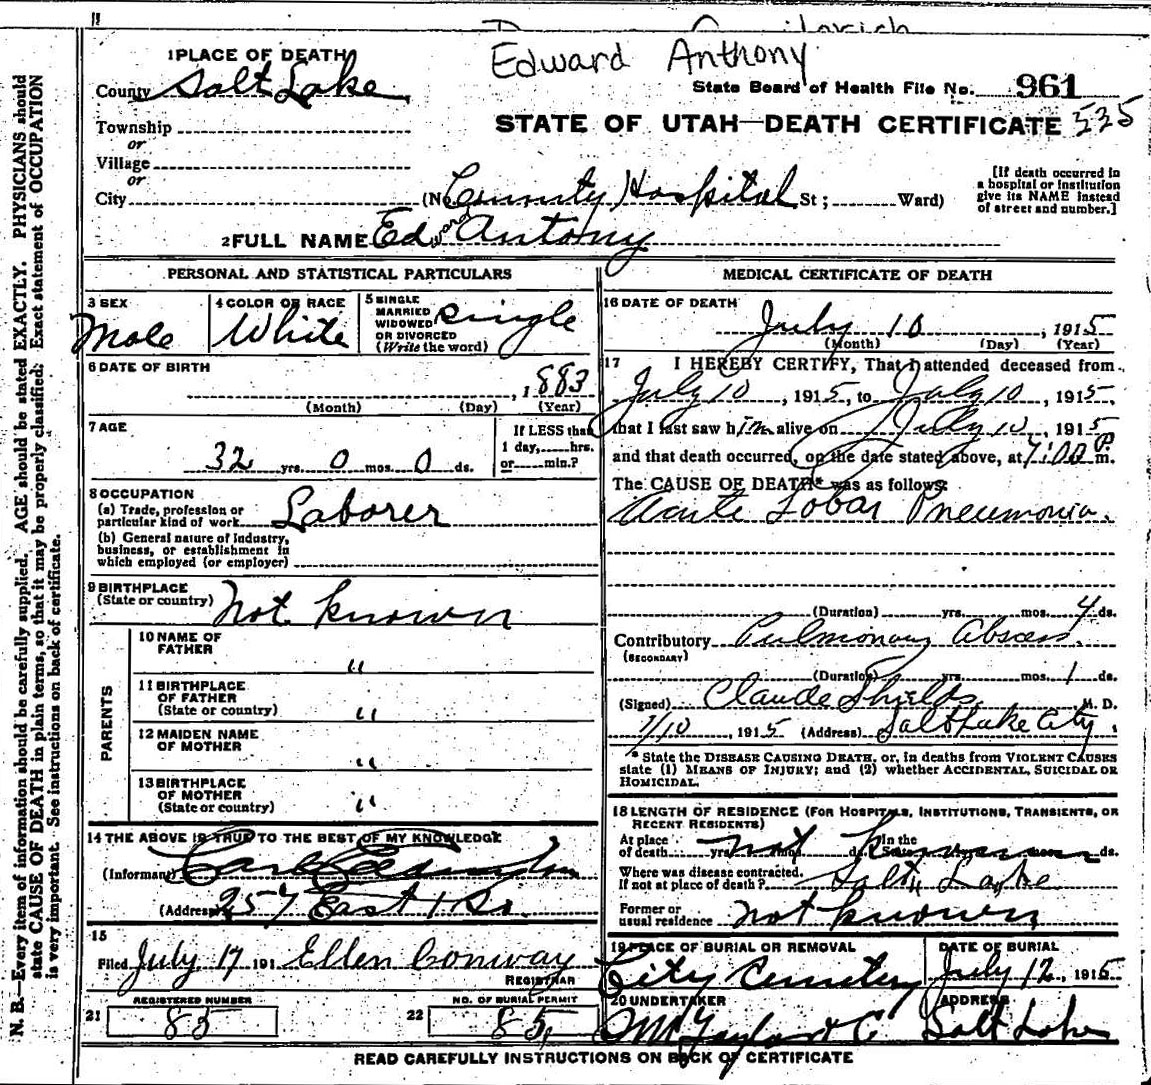 Edward Anthony
1 PLACE OF DEATH
County Salt Lake
State Board of Health File No. 961
Township
or
Village
or
City
STATE OF UTAH—DEATH CERTIFICATE 535
(No. County Hospital St; Ward)
[If death occurred in
a hospital or institution
give its NAME instead
of street and number.]
2 FULL NAME Edward Antony
PERSONAL AND STATISTICAL PARTICULARS
3 SEX
Male
4 COLOR OR RACE
White
5 SINGLE
MARRIED
WIDOWED
OR DIVORCED
(Write the word)
Single
6 DATE OF BIRTH
, 1883
(Month) (Day) (Year)
7 AGE
32 yrs. 0 mos. 0 ds.
If LESS than
1 day, hrs.
or min.?
8 OCCUPATION
(a) Trade, profession or
particular kind of work Laborer
(b) General nature of industry,
business, or establishment in
which employed (or employer)
9 BIRTHPLACE
(State or country) Not known
PARENTS
10 NAME OF
FATHER "
11 BIRTHPLACE
OF FATHER
(State or country) "
12 MAIDEN NAME
OF MOTHER "
13 BIRTHPLACE
OF MOTHER
(State or country) "
14 THE ABOVE IS TRUE TO THE BEST OF MY KNOWLEDGE
(Informant) Carl
(Address) 257 East 1 So.
15
Filed July 17 191 Ellen Conway
REGISTRAR
21 REGISTERED NUMBER
85
22 NO. OF BURIAL PERMIT
85
MEDICAL CERTIFICATE OF DEATH
16 DATE OF DEATH
July 10, 1915
(Month) (Day) (Year)
17 I HEREBY CERTIFY, That I attended deceased from
July 10, 1915, to July 10, 1915,
that I last saw him alive on July 10, 1915
and that death occurred, on the date stated above, at 7:00 P.m.
The CAUSE OF DEATH* was as follows:
Acute Lobar Pneumonia.
(Duration) yrs. mos. 4 ds.
Contributory Pulmonary Abscess.
(SECONDARY)
(Duration) yrs. mos. 1 ds.
(Signed) Claude Shields M. D.
7/10, 1915 (Address) Salt Lake City.
* State the DISEASE CAUSING DEATH, or, in deaths from VIOLENT CAUSES
state (1) MEANS OF INJURY; and (2) whether ACCIDENTAL, SUICIDAL OR
HOMICIDAL.
18 LENGTH OF RESIDENCE (FOR HOSPITALS, INSTITUTIONS, TRANSIENTS, OR
RECENT RESIDENTS)
At place In the
of death yrs. mos. ds. State yrs. mos. ds.
not known
Where was disease contracted.
If not at place of death? Salt Lake
Former or
usual residence not known
19 PLACE OF BURIAL OR REMOVAL
City Cemetery
DATE OF BURIAL
July 12, 1915
20 UNDERTAKER
ADDRESS
Salt Lake
READ CAREFULLY INSTRUCTIONS ON BACK OF CERTIFICATE
N. B.—Every item of information should be carefully supplied. AGE should be stated EXACTLY. PHYSICIANS should
state CAUSE OF DEATH in plain terms, so that it may be properly classified. Exact statement of OCCUPATION
is very important. See instructions on back of certificate.